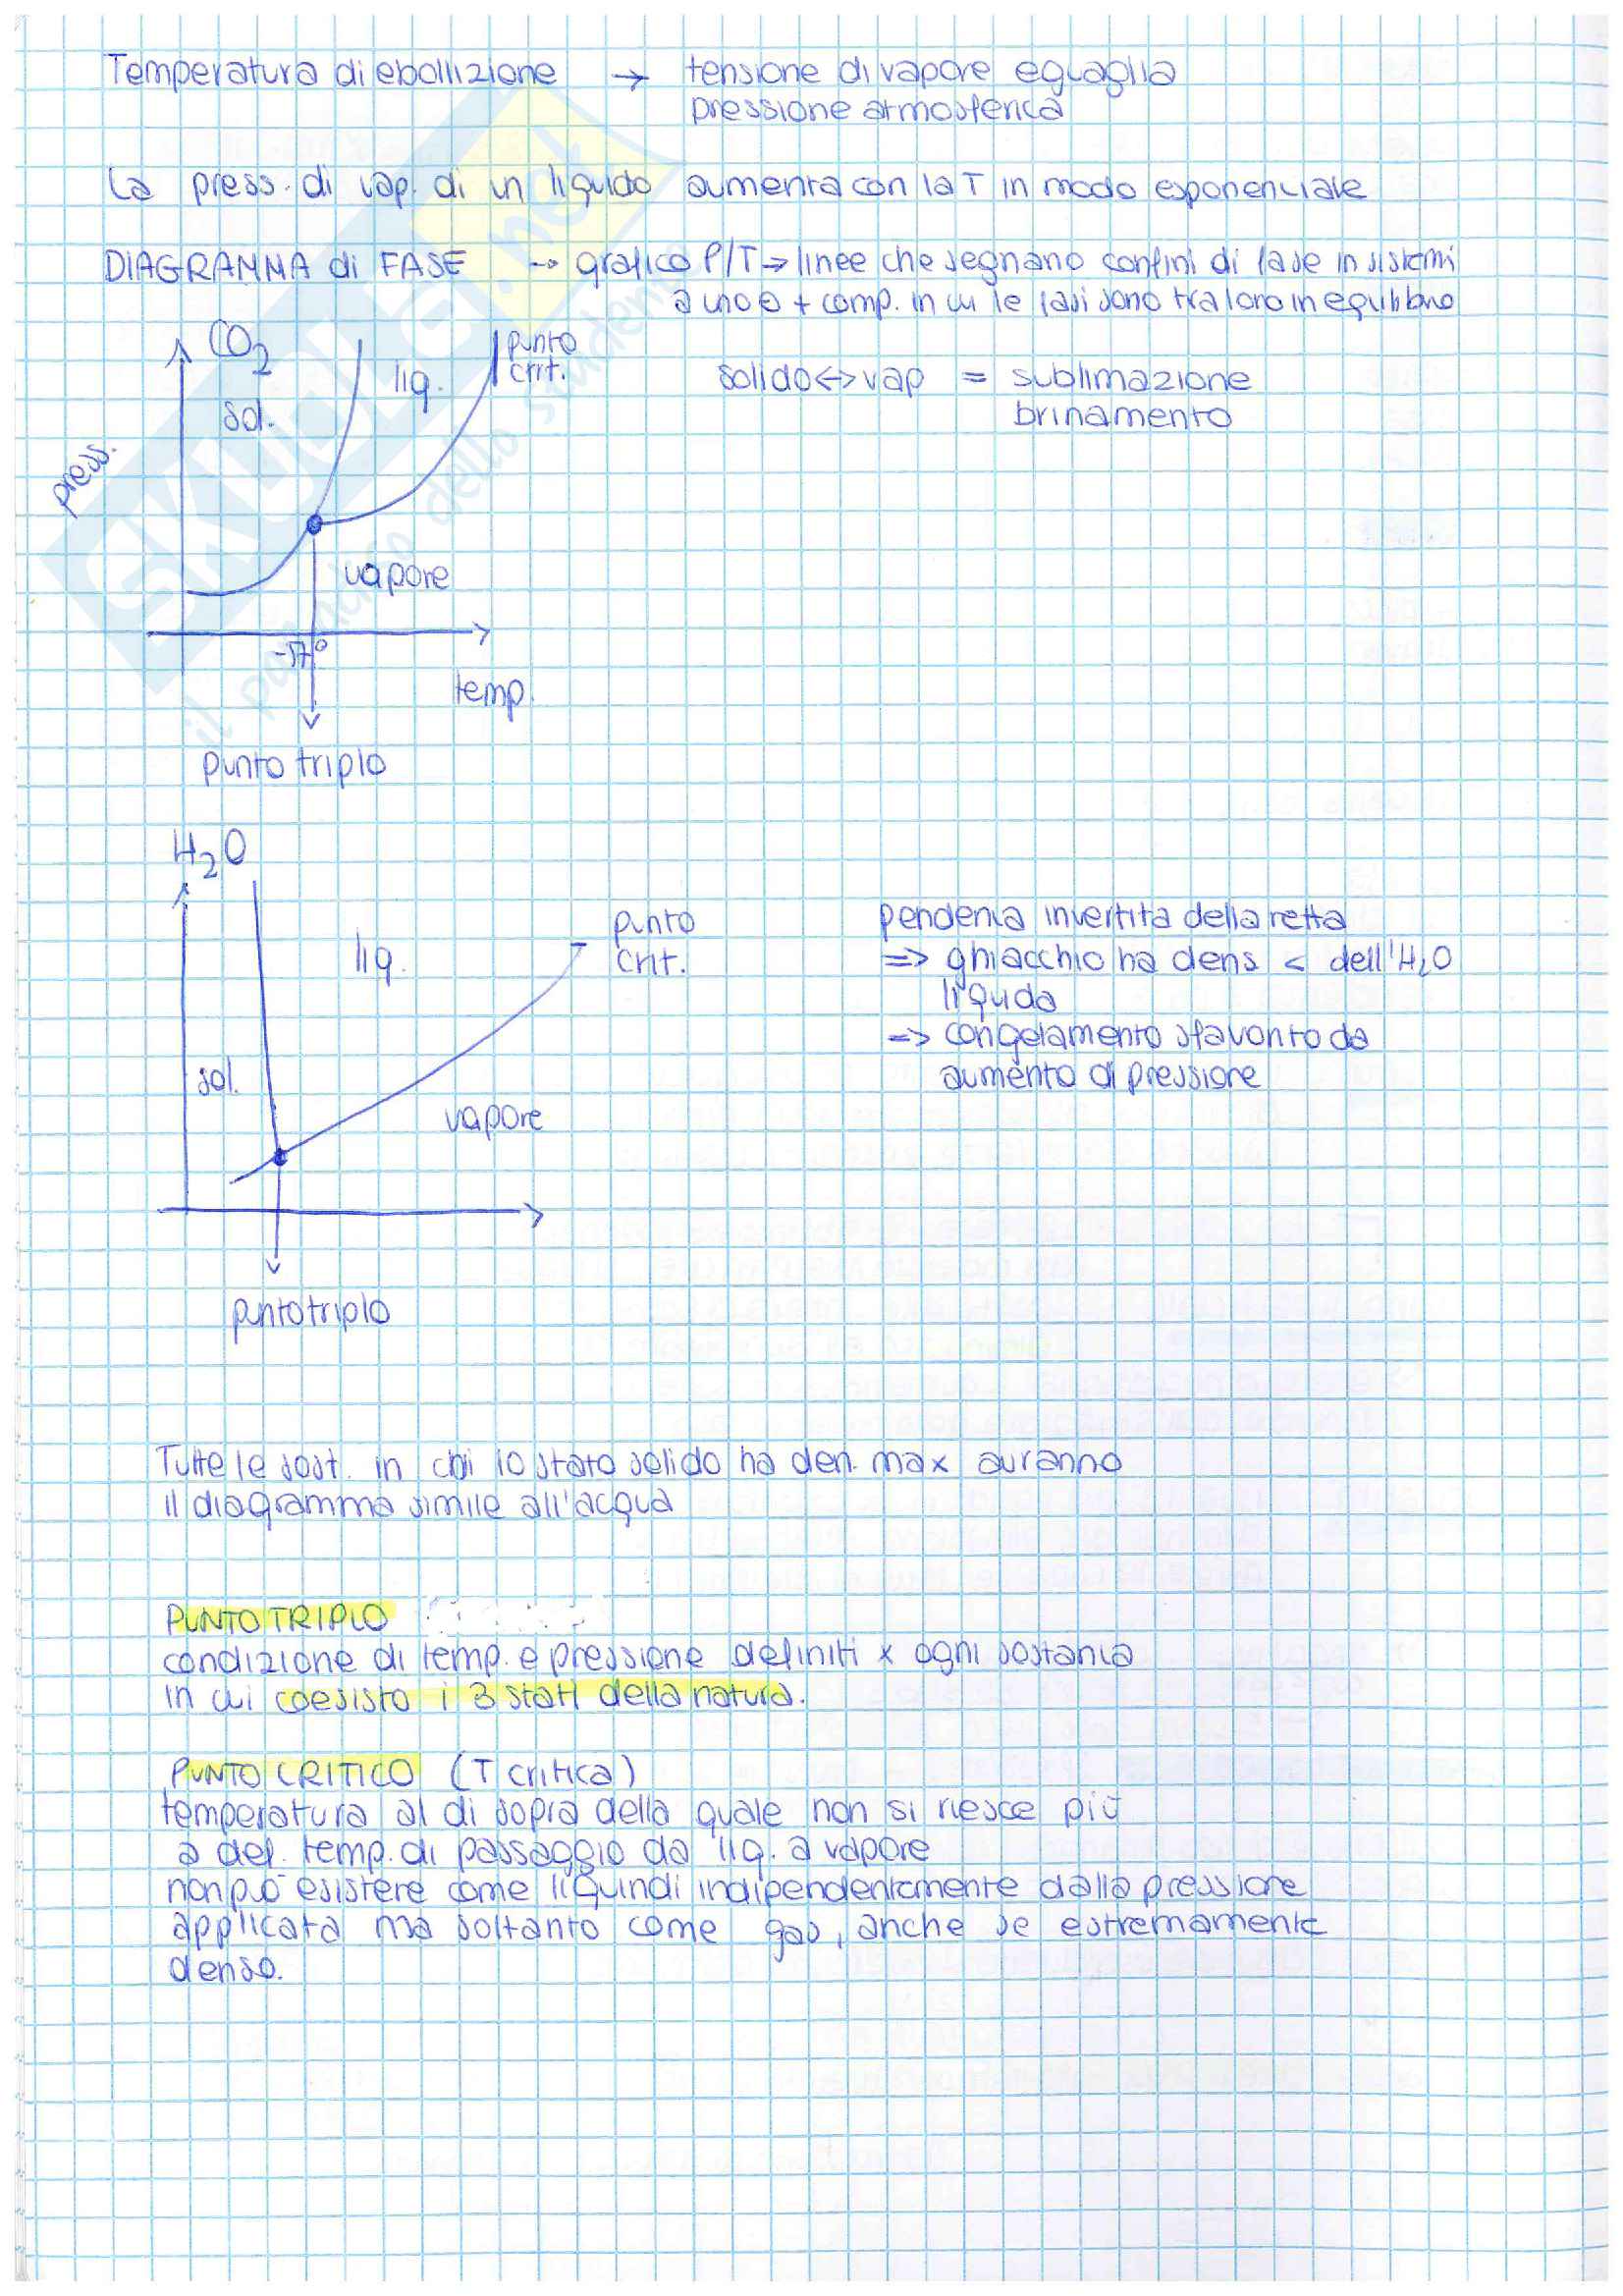 Temperatura di ebollizione → tensione di vapore eguaglia
pressione atmosferica
La press. di vap. di un liquido aumenta con la T in modo esponenziale
DIAGRAMMA di FASE → grafico P/T → linee che segnano confini di fase in sistemi
a uno o + comp. in cui le fasi sono tra loro in equilibrio
CO2
press.
sol.
liq.
punto
crit.
solido <-> vap = sublimazione
brinamento
vapore
-57°
temp.
punto triplo
H2O
liq.
punto
crit.
sol.
vapore
punto triplo
pendenza invertita della retta
=> ghiacchio ha dens < dell'H2O
liquida
=> congelamento sfavorito da
aumento di pressione
Tutte le sost. in cui lo stato solido ha den. max avranno
il diagramma simile all'acqua
PUNTO TRIPLO
condizione di temp. e pressione definiti x ogni sostanza
in cui coesisto i 3 stati della natura.
PUNTO CRITICO (T critica)
temperatura al di sopra della quale non si riesce più
a def. temp. di passaggio da liq. a vapore
non può esistere come liquindi indipendentemente dalla pressione
applicata ma soltanto come gas, anche se estremamente
denso.
SKUOLA.net
il paradiso dello studente